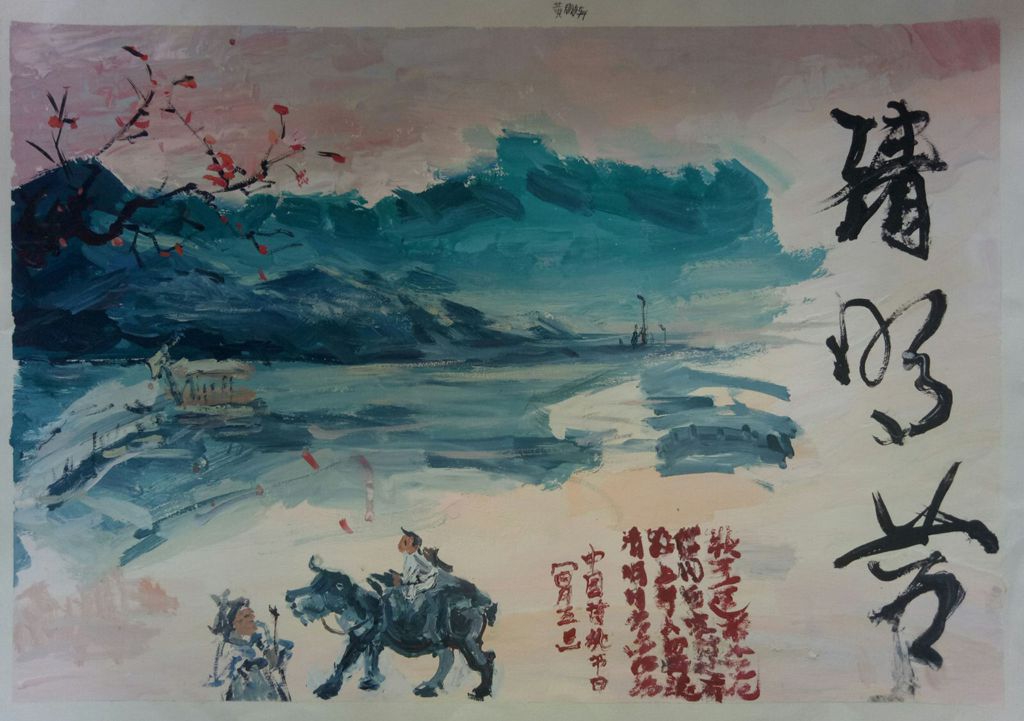 清明节
【四月五日】
中国传统节日
清明时节雨纷纷
路上行人欲断魂
借问酒家何处有
牧童遥指杏花村